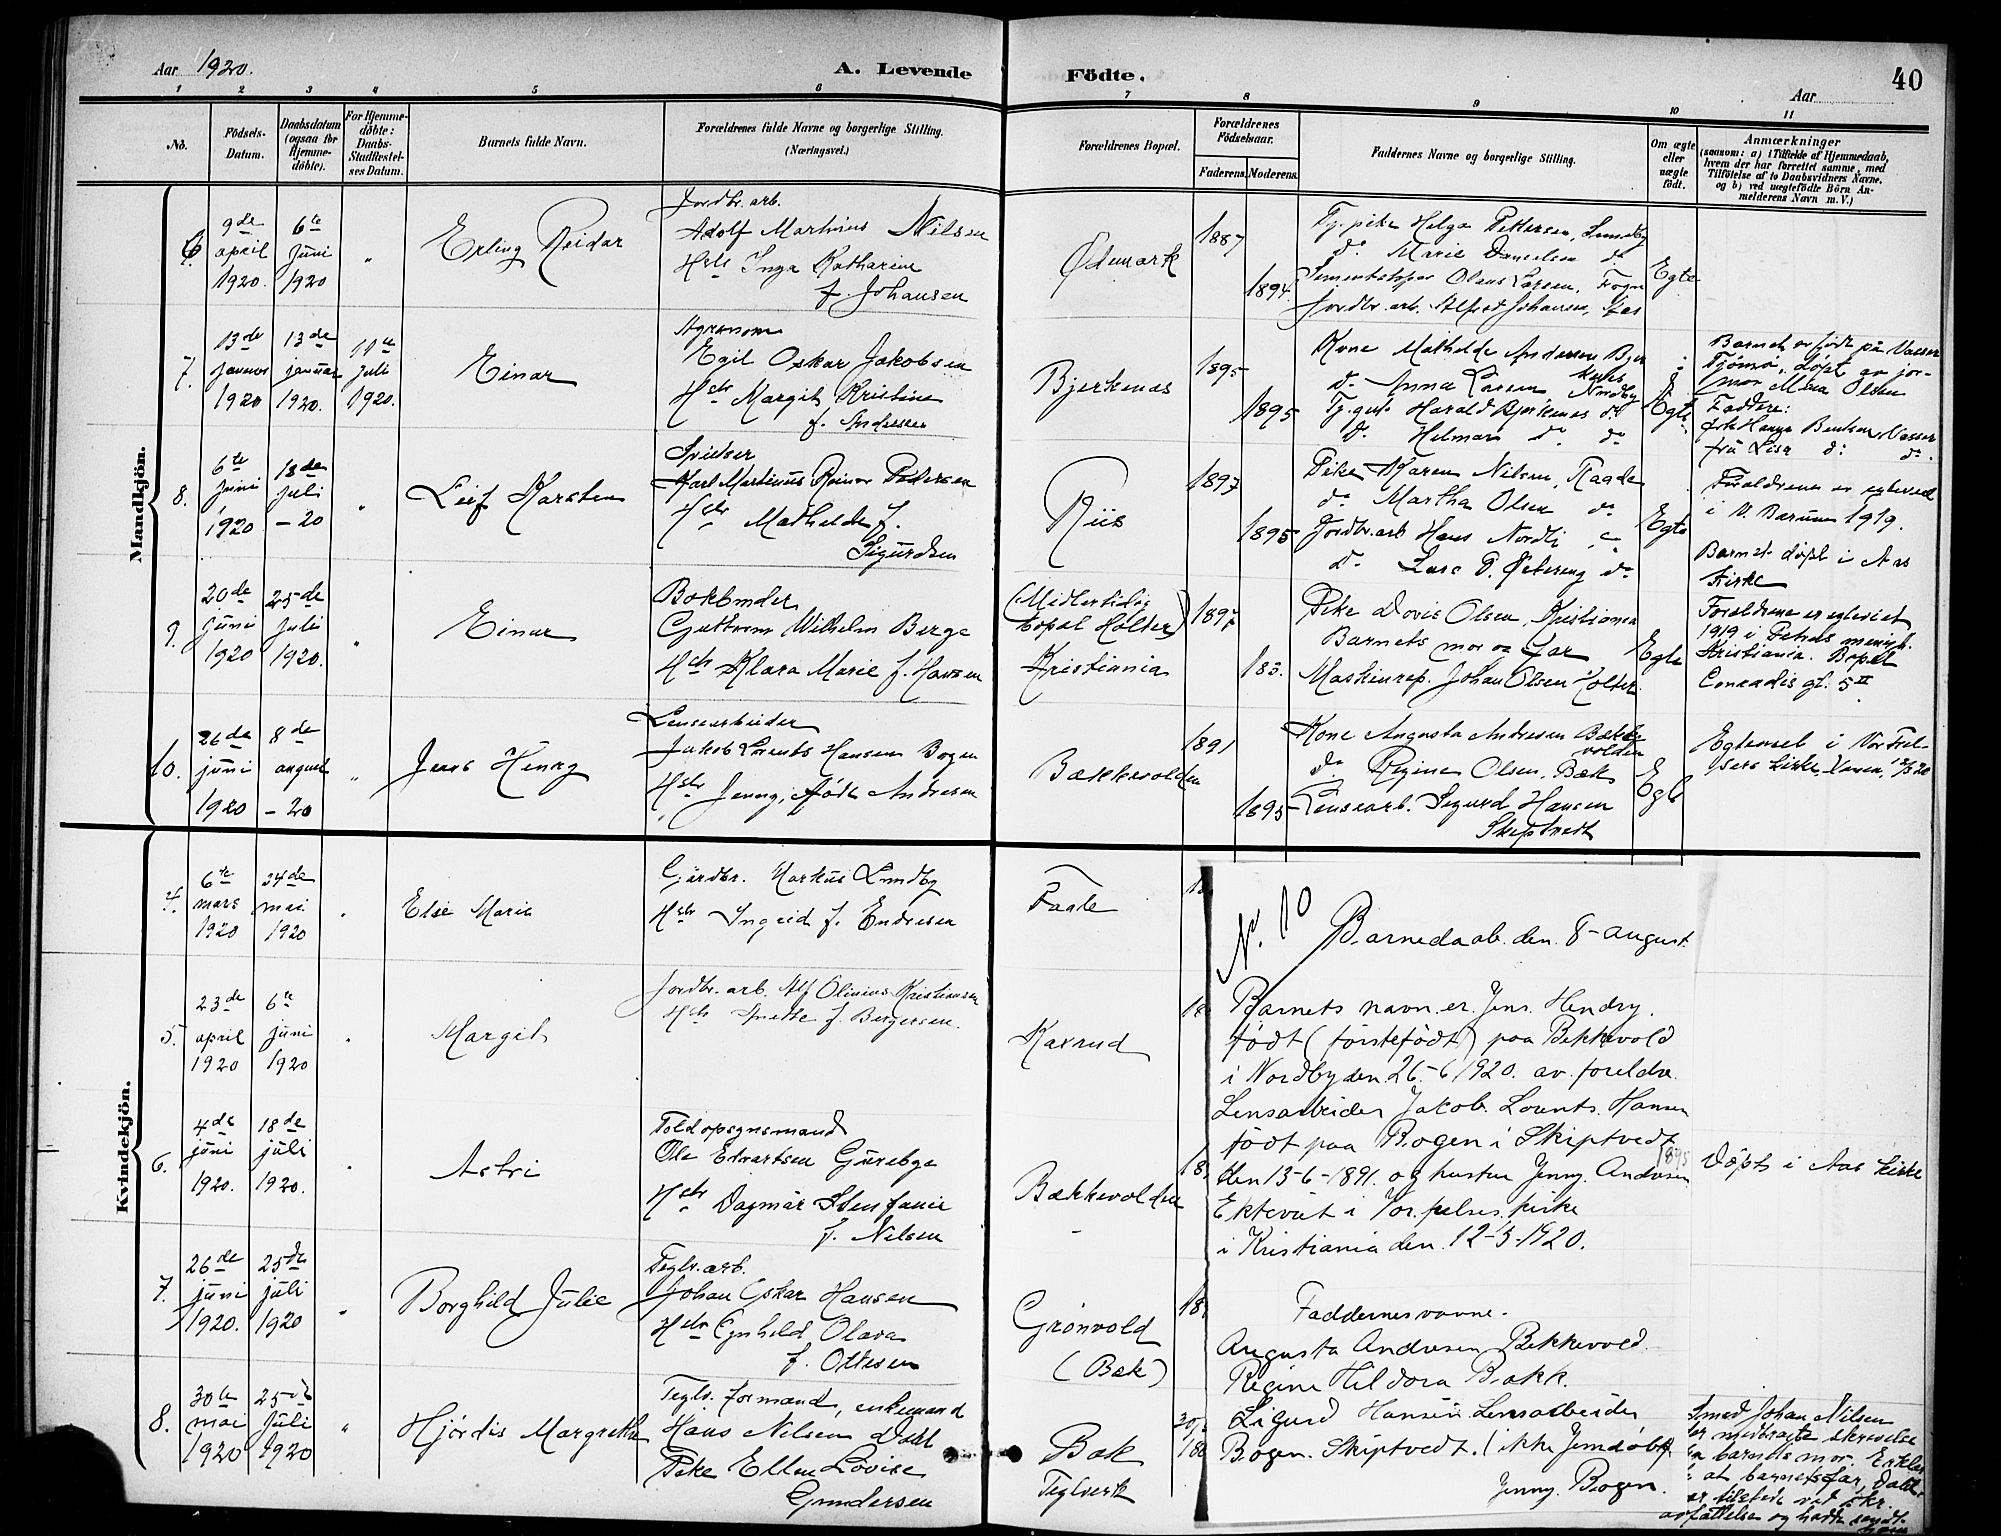 Aar 1920.
A. Levende Födte.
40
Aar
1 2 3 4 5 6 7 8 9 10 11
No.
Födsels-Datum.
Daabsdatum (ogsaa for Hjemmedöbte).
For Hjemmedöbte: Daabs-Stadfæstelses Datum.
Barnets fulde Navn.
Forældrenes fulde Navne og borgerlige Stilling. (Næringsvei.)
Forældrenes Bopæl.
Forældrenes Födselsaar.
Faderens. Moderens.
Faddernes Navne og borgerlige Stilling.
Om ægte eller uægte födt.
Anmærkninger
(saasom: a) i Tilfælde af Hjemmedaab, hvem der har forrettet samme, med Tilföielse af to Daabsvidners Navne, og b) ved uægtefödte Börn Anmelderens Navn m. V.)
Mandkjön.
6. 9de april 1920. 6te juni 1920 "
Erling Reidar
Jordbr. arb.
Adolf Martinius Nilsen
Hstr Inga Katharine
f. Johansen
Ødemark
1887
1894.
Tj. pike Helga Pettersen,
do Marie Danielsen do
Olaus Larsen,
Jordbr. arb. Alfred Johansen,
Egte
7. 13de januar 1920 13de januar 1920. 11te juli 1920.
Einar
Agronom
Egil Oskar Jakobsen
Hstr Margit Kristine
f. Andersen
Bjerkenas
1895
1895
Kone Mathilde Andersen
do Anna Larsen Nordby
Tj. gut Harald Bjerkenas do
do Helmar do do
Egte
Barnet er født på Vasser
Tjømø, døpt av jor-
mor Mina Olsen
Faddere:
frk Hanna Bentsen, Vasser
fru Lisa do do.
8. 6te juni 1920 18de juli - 20 "
Leif Karsten
Karl Martinius Reinor Pedersen
Hstr Mathilde f.
Sigurdsen
Riis
1897
1895
Pike Karen Nilsen, Raade
do Martha Olsen do
Jordbr. arb Hans Nordli
do Lars P. do
Egte
Foreldrene er egteviet
i V. Bærum 1919.
Barnet døpt i Aas
Kirke
9. 20de juni 1920 25de juli 1920. "
Einar
Bokbinder
Guttorm Wilhelm Berge
Hstr Klara Marie f. Hansen
(Midlertidig
bopæl Holter)
Kristiania
1897
Pike Dovie Olsen, Kristiania
Barnets mor og far
Maskinrep. Johan Olsen Holter.
Egte
Foreldrene er egteviet
1919 i Petrus menigh.
Kristiania. Bopæl
Conradis gt. 5 II
10. 26de juni 1920 8de august - 20 "
Jens Henry
Lensearbeider
Jakob Lorents Hansen Bogen
Hstr Jenny, født Andresen
Bækkevolden
1891
1895
Kone Augusta Andresen Bække
volden
do Regine Olsen, Bæk
Lensearb. Sigurd Hansen
Skiptvedt
Egte
Egteviet i Vor Frel-
sers kirke, 12/5 20
Kvindekjön.
4. 6te mars 1920 24de mai 1920 "
Else Marie
Gårdbr. Markus Lundby
Hstr Ingrid f. Endresen
Faale
5. 23de april 1920 6te juni 1920 "
Margit
Jordbr. arb. Alf Olinius Kristiansen
Hstr f. Bergersen.
Kaxrud
6. 4de juni 1920. 18de juli 1920. "
Astri
Toldopsynsmand
Ole Edvartsen Gurebye
Hstr Dagmar Stenfanie
f. Nilsen
Bækkevolden
Døpt i Aas kirke
7. 26de juni 1920. 25de juli 1920 "
Borghild Julie
Teglv. arb.
Johan Oskar Hansen
Hstr Gunhild Olava
f. Ottesen
Grønvold
(Bæk)
8. 30te mai 1920 25de juli 1920 "
Hjørdis Margrethe
Teglv. formand, enkemand
Hans Nilsen Dahl
Pike Ellen Lovise
Gundersen
Bæk
Teglverk
Smed Johan Nilsen
medbragte skrivelse
barnets mor. Erklær
at barnets far, Dahl
tilstede ved skr.
avfattelse og hadde sendt
Nr. 10
Barnedaab den 8 - august.
Barnets navn er Jens Hendry.
født (førstefødt) paa Bekkevold
i Nordby den 26-6 1920. av foreldre
Lensarbeider Jakob Lorents Hansen
født paa Bogen i Skiptvedt
den 13-6-1891. og hustru Jenny Andresen 1895
Ekteviet i Vor frelses kirke
i Kristiania den 12-5-1920.
Faddernes navne.
Augusta Andresen Bekkevold.
Regine Heldora Bakk.
Sigurd Hansen Lensarbeider
Bogen Skiptvedt. (ikke hjemdøbt)
Jenny Bogen.